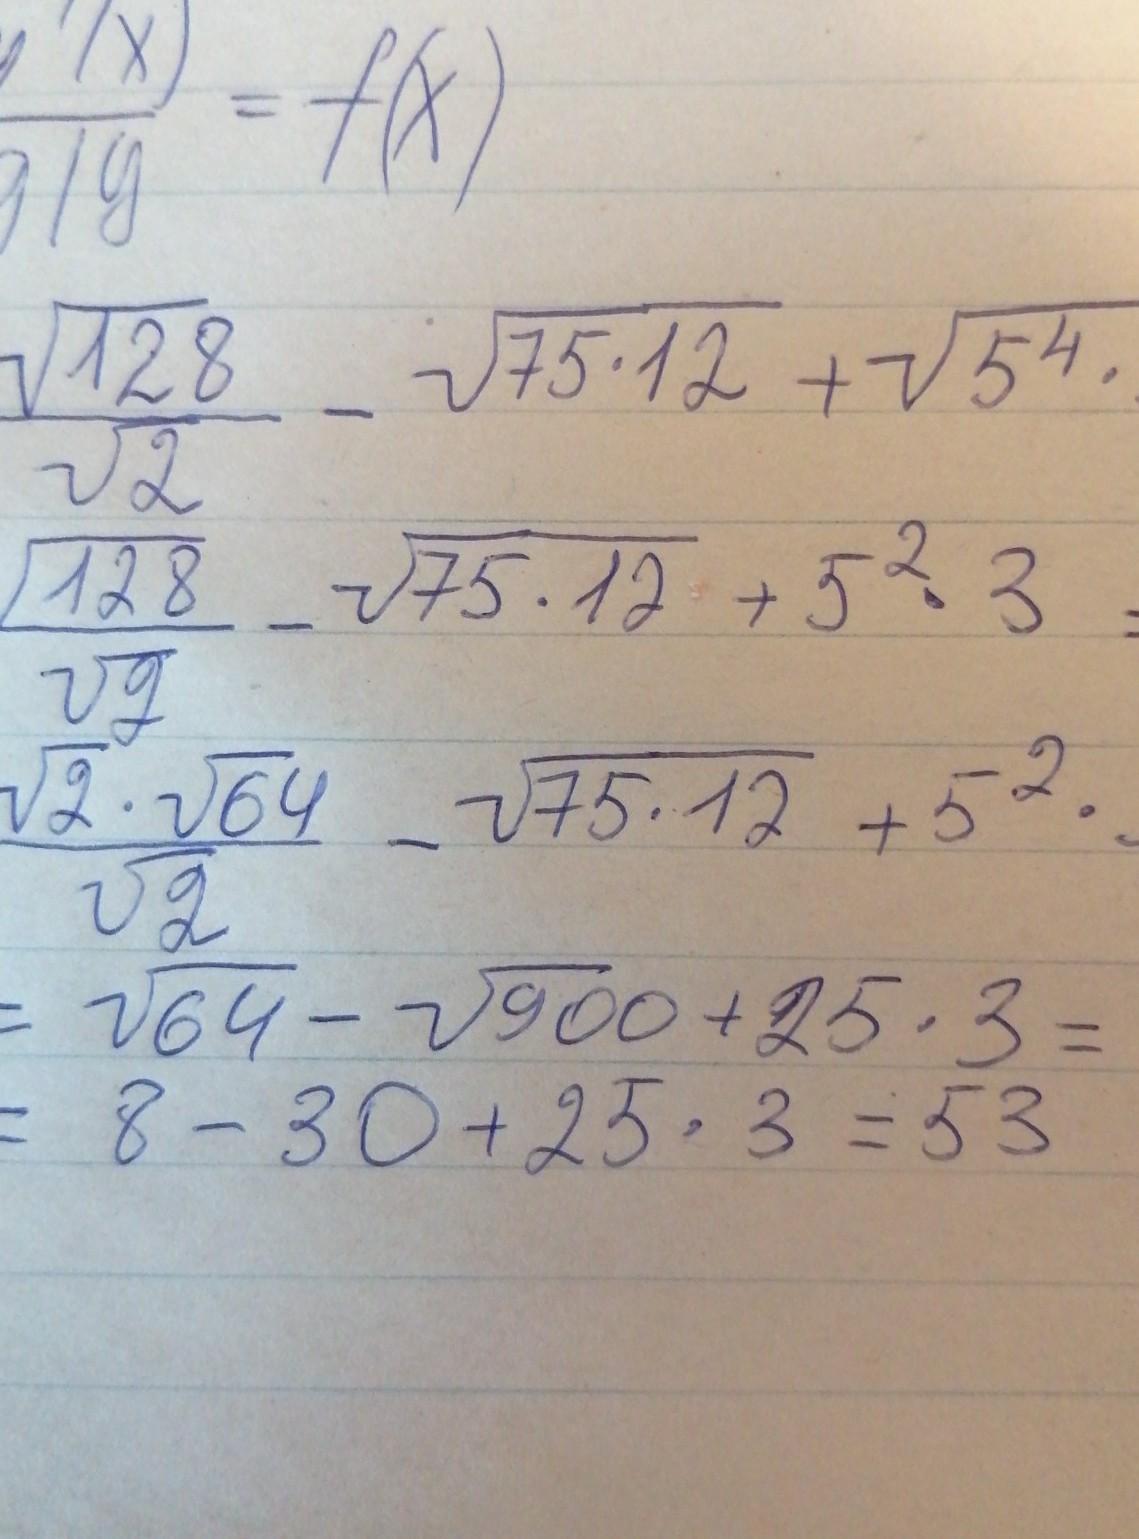 = f(x)
√128 / √2 - √75·12 + √5⁴·
√128 / √2 - √75·12 + 5²·3 =
√2·√64 / √2 - √75·12 + 5²·
= √64 - √900 + 25·3 =
= 8 - 30 + 25·3 = 53